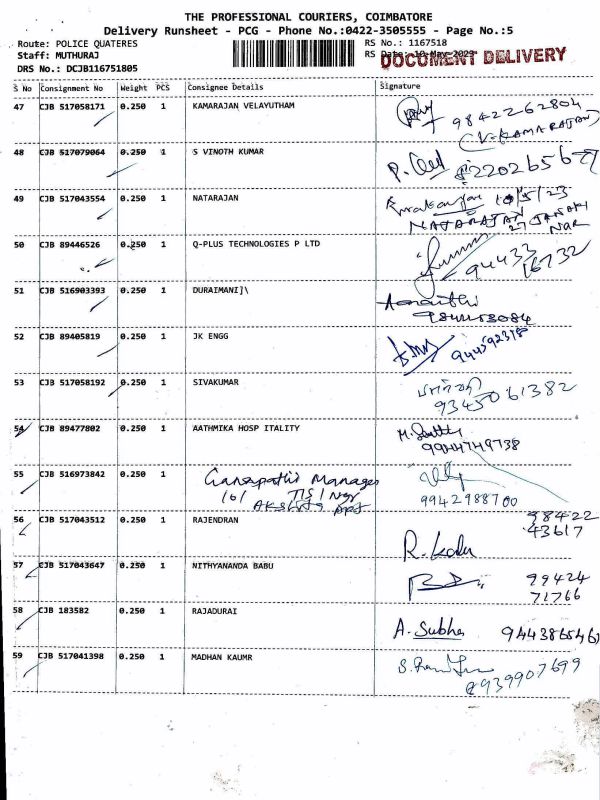 THE PROFESSIONAL COURIERS, COIMBATORE
Delivery Runsheet - PCG - Phone No.:0422-3505555 - Page No.:5
Route: POLICE QUATERES RS No.: 1167518
Staff: MUTHURAJ RS Date: 10-May-2023 DOCUMENT DELIVERY
DRS No.: DCJB116751805
S No Consignment No Weight PCS Consignee Details Signature
47 CJB 517058171 0.250 1 KAMARAJAN VELAYUTHAM 98422 62804
(V.KAMARAJAN)
48 CJB 517079064 0.250 1 S VINOTH KUMAR
49 CJB 517043554 0.250 1 NATARAJAN 10/5/23
NATARAJAN 27 JANAKI
Nar
50 CJB 89446526 0.250 1 Q-PLUS TECHNOLOGIES P LTD 94433
16732
51 CJB 516903393 0.250 1 DURAIMANI]\
52 CJB 89405819 0.250 1 JK ENGG
53 CJB 517058192 0.250 1 SIVAKUMAR
93450 61382
54 CJB 89477802 0.250 1 AATHMIKA HOSP ITALITY
9944749738
55 CJB 516973842 0.250 1 Ganapathi Manager
9942988700
56 CJB 517043512 0.250 1 RAJENDRAN 98422
43617
57 CJB 517043647 0.250 1 NITHYANANDA BABU 99424
71766
58 CJB 183582 0.250 1 RAJADURAI
A. Subha 9443865463
59 CJB 517041398 0.250 1 MADHAN KAUMR
939907699